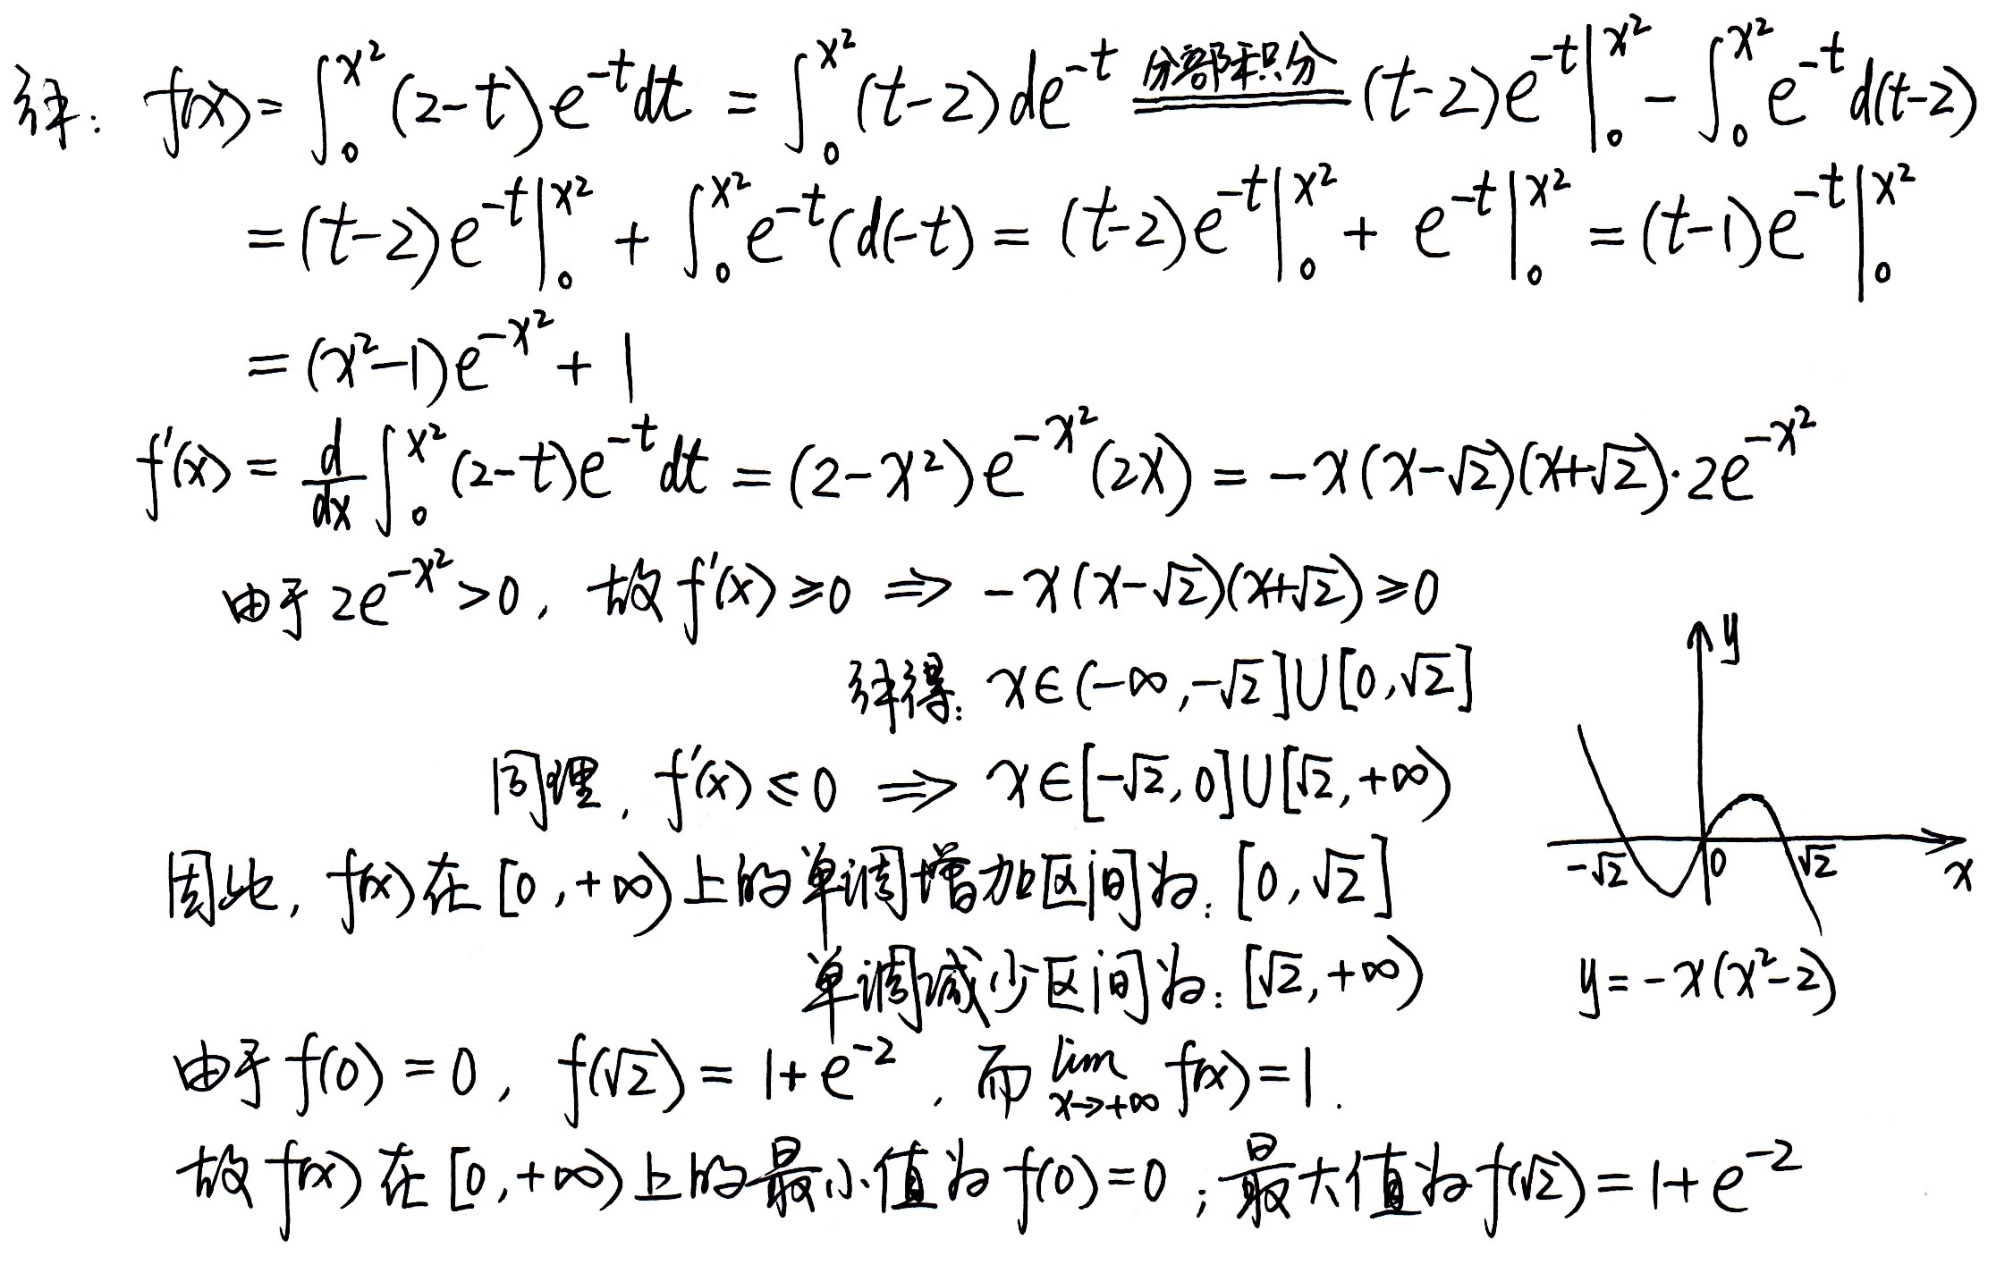 解: f(x) = ∫₀^{x²} (2-t)e^{-t}dt = ∫₀^{x²} (t-2)de^{-t} 分部积分 (t-2)e^{-t}|₀^{x²} - ∫₀^{x²} e^{-t}d(t-2)
= (t-2)e^{-t}|₀^{x²} + ∫₀^{x²} e^{-t}(d(-t) = (t-2)e^{-t}|₀^{x²} + e^{-t}|₀^{x²} = (t-1)e^{-t}|₀^{x²}
= (x²-1)e^{-x²} + 1
f'(x) = d/dx ∫₀^{x²} (2-t)e^{-t}dt = (2-x²)e^{-x²}(2x) = -x(x-√2)(x+√2)·2e^{-x²}
由于 2e^{-x²} > 0, 故 f'(x) ≥ 0 ⇒ -x(x-√2)(x+√2) ≥ 0
解得: x∈(-∞,-√2]∪[0,√2]
同理, f'(x) ≤ 0 ⇒ x∈[-√2,0]∪[√2,+∞)
因此, f(x)在[0,+∞)上的单调增加区间为: [0,√2]
单调减少区间为: [√2,+∞)
y
-√2 0 √2 x
y = -x(x²-2)
由于 f(0) = 0, f(√2) = 1+e^{-2}, 而 lim_{x→+∞} f(x) = 1.
故 f(x) 在 [0,+∞) 上的最小值为 f(0)=0 ; 最大值为 f(√2) = 1+e^{-2}